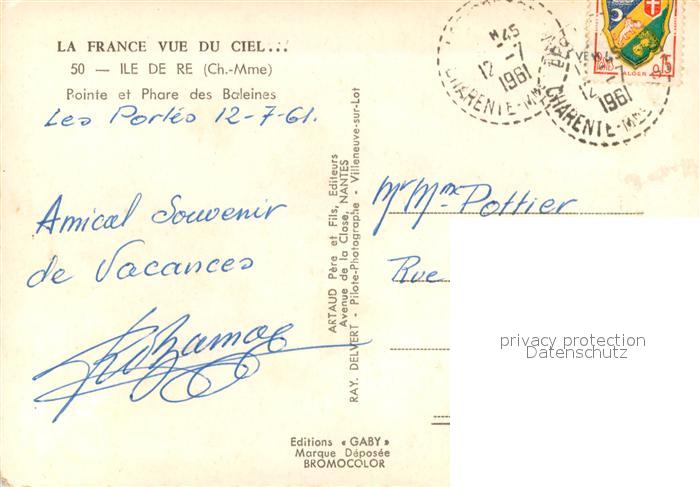 LA FRANCE VUE DU CIEL...
50 — ILE DE RE (Ch.-Mme)
Pointe et Phare des Baleines
Les Portes 12-7-61.
Amical Souvenir
de Vacances
ARTAUD Père et Fils, Editeurs
Avenue de la Close, NANTES
RAY. DELVERT - Pilote-Photographe - Villeneuve-sur-Lot
Editions « GABY »
Marque Déposée
BROMOCOLOR
12-7
1961
CHARENTE-MME
12-7
1961
CHARENTE-MME
ALGER
Mr Mme Pottier
Rue
privacy protection
Datenschutz